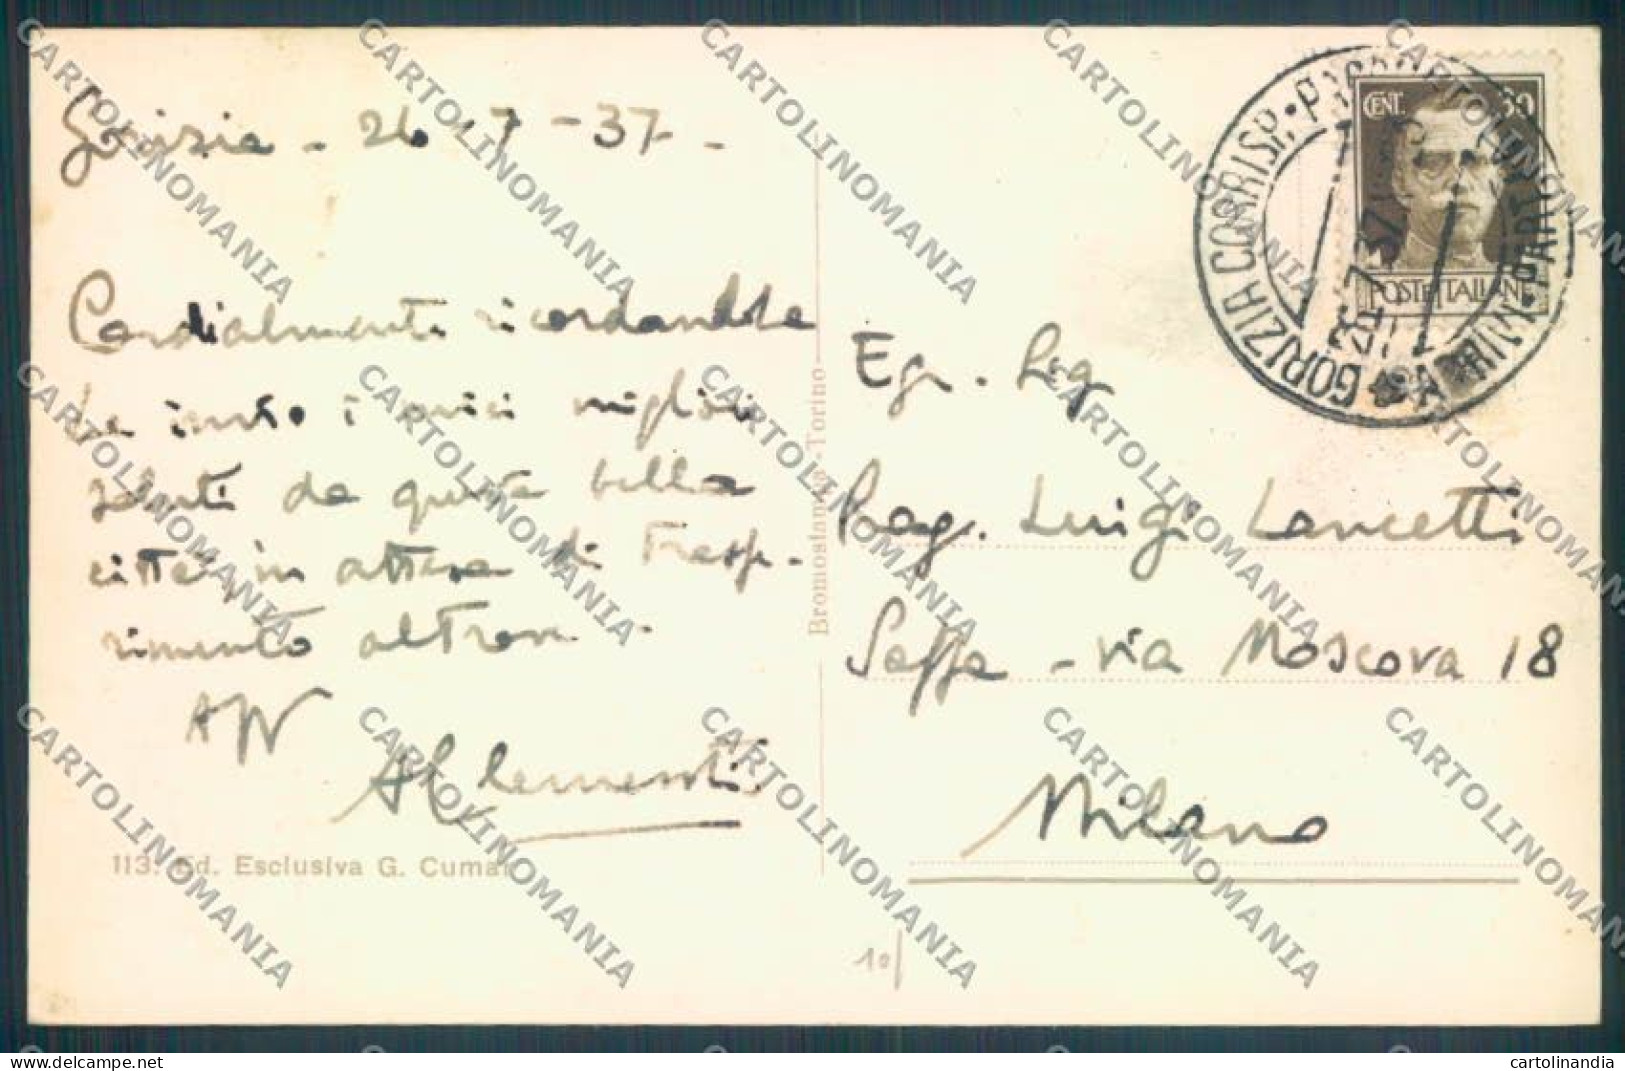 Gorizia - 26-7-37-
Cordialmente ricordandola
Le invio i miei migliori
saluti da questa bella
città, in attesa di trasfe-
rimento altrove.
Clementi
113. Ed. Esclusiva G. Cumar
Bromostampa - Torino
GORIZIA CORRISP. PACCHI
26.7.37
CENT. 30
POSTE ITALIANE
Egr. Sig
Rag. Luigi Lancetti
Saffa - via Moscova 18
Milano
10/
CARTOLINOMANIA
cartolinandia